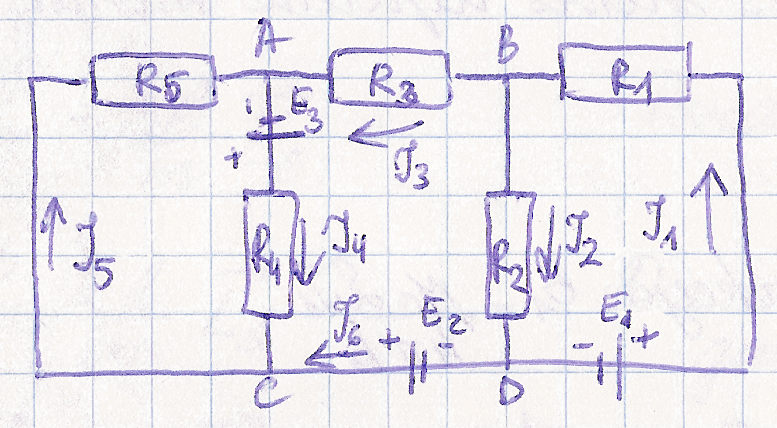 A B
R5 R3 R1
- E3
+
J3
J5 R4 J4 R2 J2 J1
J6 + E2 - - E1 +
C D